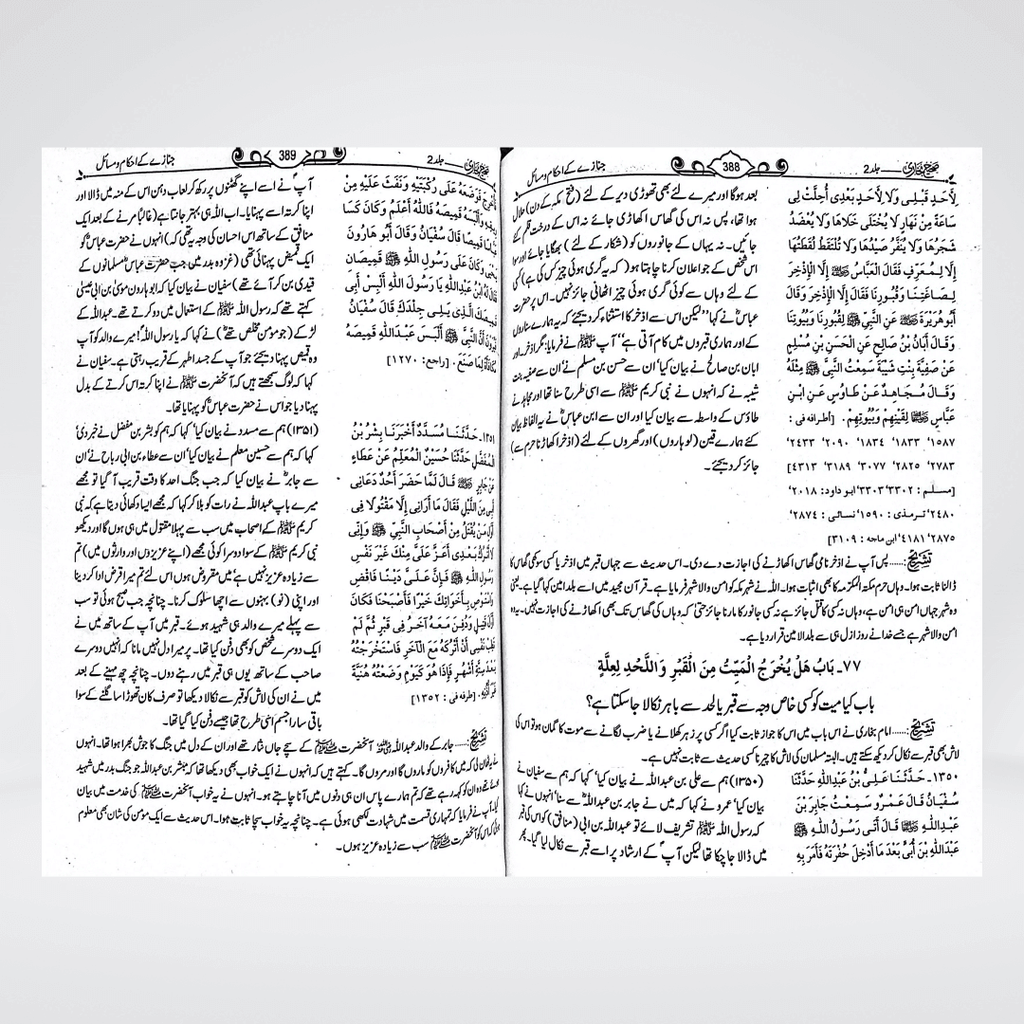 صحیح بخاری جلد 2
388
جنازے کے احکام و مسائل
لِأَحَدٍ قَبْلِي وَلَا لِأَحَدٍ بَعْدِي أُحِلَّتْ لِي
سَاعَةً مِنْ نَهَارٍ لَا يُخْتَلَى خَلَاهَا وَلَا يُعْضَدُ
شَجَرُهَا وَلَا يُنَفَّرُ صَيْدُهَا وَلَا تُلْتَقَطُ لُقَطَتُهَا
إِلَّا لِمُعَرِّفٍ فَقَالَ الْعَبَّاسُ ﷺ إِلَّا الإِذْخِرَ
لِصَاغَتِنَا وَقُبُورِنَا فَقَالَ إِلَّا الإِذْخِرَ وَقَالَ
أَبُو هُرَيْرَةَ ﷺ عَنِ النَّبِيِّ ﷺ لِقُبُورِنَا وَبُيُوتِنَا
وَقَالَ أَبَانُ بْنُ صَالِحٍ عَنِ الْحَسَنِ بْنِ مُسْلِمٍ
عَنْ صَفِيَّةَ بِنْتِ شَيْبَةَ سَمِعْتُ النَّبِيَّ ﷺ مِثْلَهُ
وَقَالَ مُجَاهِدٌ عَنْ طَاوُسٍ عَنِ ابْنِ
عَبَّاسٍ ﷺ لِقَيْنِهِمْ وَبُيُوتِهِمْ. [أطرافه في :
۱۵۸۷' ۱۸۳۳' ۱۸۳٤' ۲۰۹۰' ۲٤۳۳'
۲۷۸۳' ۲۸۲۵' ۳۰۷۷' ۳۱۸۹' ٤۳۱۳]
[مسلم : ۳۳۰۲' ۳۳۰۳' ابو داود: ۲۰۱۸'
۲٤۸۰' ترمذی: ۱۵۹۰' نسائی: ۲۸۷٤'
۲۸۷۵' ٤۱۸۱' ابن ماجه : ۳۱۰۹]
بعد ہوگا اور میرے لئے بھی تھوڑی دیر کے لئے (فتح مکہ کے دن) حلال
ہوا تھا، پس نہ اس کی گھاس اکھاڑی جائے نہ اس کے درخت قلم کئے
جائیں۔ نہ یہاں کے جانوروں کو (شکار کے لئے) بھگایا جائے اور سوا
اس شخص کے جو اعلان کرنا چاہتا ہو (کہ یہ گری ہوئی چیز کس کی ہے) کسی
کے لئے وہاں سے کوئی گری ہوئی چیز اٹھانی جائز نہیں۔ اس پر حضرت
عباسؓ نے کہا "لیکن اس سے اذخر کا استثناء کر دیجئے کہ یہ ہمارے سناروں
کے اور ہماری قبروں میں کام آتی ہے" آپ ﷺ نے فرمایا: مگر اذخر اور
ابان بن صالح نے بیان کیا' ان سے حسن بن مسلم نے' ان سے صفیہ بنت
شیبہ نے کہ انہوں نے نبی کریم ﷺ سے اسی طرح سنا تھا اور مجاہد نے
طاؤس کے واسطہ سے بیان کیا اور ان سے ابن عباسؓ نے یہ الفاظ بیان
کئے ہمارے قین (لوہاروں) اور گھروں کے لئے (اذخر اکھاڑنا حرم سے)
جائز کر دیجئے۔
تشریح:...... پس آپ نے اذخر نامی گھاس اکھاڑنے کی اجازت دے دی۔ اس حدیث سے جہاں قبر میں اذخر یا کسی سوکھی گھاس کا
ڈالنا ثابت ہوا۔ وہاں حرم مکۃ المکرمہ کا بھی اثبات ہوا۔ اللہ نے شہر مکہ کو امن والا شہر فرمایا ہے۔ قرآن مجید میں اسے بلد امین کہا گیا ہے۔ یعنی
وہ شہر جہاں امن ہی امن ہے، وہاں نہ کسی کا قتل جائز ہے نہ کسی جانور کا مارنا جائز حتی کہ وہاں کی گھاس تک بھی اکھاڑنے کی اجازت نہیں۔ یہ وہ
امن والا شہر ہے جسے خدا نے روز ازل ہی سے بلد الامین قرار دیا ہے۔
۷۷۔ بَابُ هَلْ يُخْرَجُ الْمَيِّتُ مِنَ الْقَبْرِ وَاللَّحْدِ لِعِلَّةٍ
باب کیا میت کو کسی خاص وجہ سے قبر یا لحد سے باہر نکالا جا سکتا ہے؟
تشریح:...... امام بخاری نے اس باب میں اس کا جواز ثابت کیا اگر کسی پر زہر کھلانے یا ضرب لگانے سے موت کا گمان ہو تو اس کی
لاش بھی قبر سے نکال کر دیکھ سکتے ہیں۔ البتہ مسلمان کی لاش کا چیرنا کسی حدیث سے ثابت نہیں ہے۔
۱۳۵۰۔ حَدَّثَنَا عَلِيُّ بْنُ عَبْدِاللَّهِ حَدَّثَنَا
سُفْيَانُ قَالَ عَمْرٌو سَمِعْتُ جَابِرَ بْنَ
عَبْدِاللَّهِ ﷺ قَالَ أَتَى رَسُولُ اللَّهِ ﷺ
عَبْدَاللَّهِ بْنَ أُبَيٍّ بَعْدَ مَا أُدْخِلَ حُفْرَتَهُ فَأَمَرَ بِهِ
(۱۳۵۰) ہم سے علی بن عبداللہ نے بیان کیا' کہا کہ ہم سے سفیان نے
بیان کیا' عمرو نے کہا کہ میں نے جابر بن عبداللہؓ سے سنا' انہوں نے کہا
کہ رسول اللہ ﷺ تشریف لائے تو عبداللہ بن ابی (منافق) کو اس کی قبر
میں ڈالا جا چکا تھا لیکن آپؐ کے ارشاد پر اسے قبر سے نکال لیا گیا۔ پھر
صحیح بخاری جلد 2
389
جنازے کے احکام و مسائل
فَأُخْرِجَ فَوَضَعَهُ عَلَى رُكْبَتَيْهِ وَنَفَثَ عَلَيْهِ مِنْ
رِيقِهِ وَأَلْبَسَهُ قَمِيصَهُ فَاللَّهُ أَعْلَمُ وَكَانَ كَسَا
عَبَّاسًا قَمِيصًا قَالَ سُفْيَانُ وَقَالَ أَبُو هَارُونَ
يَحْيَى وَكَانَ عَلَى رَسُولِ اللَّهِ ﷺ قَمِيصَانِ
فَقَالَ لَهُ ابْنُ عَبْدِاللَّهِ يَا رَسُولَ اللَّهِ أَلْبِسْ أَبِي
قَمِيصَكَ الَّذِي يَلِي جِلْدَكَ قَالَ سُفْيَانُ
فَيُرَوْنَ أَنَّ النَّبِيَّ ﷺ أَلْبَسَ عَبْدَاللَّهِ قَمِيصَهُ
مُكَافَأَةً لِمَا صَنَعَ. [راجع: ۱۲۷۰]
آپؐ نے اسے اپنے گھٹنوں پر رکھ کر لعاب دہن اس کے منہ میں ڈالا اور
اپنا کرتہ اسے پہنایا۔ اب اللہ ہی بہتر جانتا ہے (غالباً مرنے کے بعد ایک
منافق کے ساتھ اس احسان کی وجہ یہ تھی کہ) انہوں نے حضرت عباسؓ کو
ایک قمیض پہنائی تھی (غزوہ بدر میں جب حضرت عباسؓ مسلمانوں کے
قیدی بن کر آئے تھے) سفیان نے بیان کیا کہ ابو ہارون موسیٰ بن ابی عیسیٰ
کہتے تھے کہ رسول اللہ ﷺ کے استعمال میں دو کرتے تھے۔ عبداللہ کے
لڑکے (جو مومن مخلص تھے) نے کہا کہ یا رسول اللہ! میرے والد کو آپ
وہ قمیص پہنا دیجئے جو آپ کے جسد اطہر کے قریب رہتی ہے۔ سفیان نے
کہا کہ لوگ سمجھتے ہیں کہ آنحضرت ﷺ نے اپنا کرتہ اس کرتے کے بدل
پہنا دیا جو اس نے حضرت عباسؓ کو پہنایا تھا۔
۱۳۵۱۔ حَدَّثَنَا مُسَدَّدٌ أَخْبَرَنَا بِشْرُ بْنُ
الْمُفَضَّلِ حَدَّثَنَا حُسَيْنٌ الْمُعَلِّمُ عَنْ عَطَاءٍ
عَنْ جَابِرٍ ﷺ قَالَ لَمَّا حَضَرَ أُحُدٌ دَعَانِي
أَبِي مِنَ اللَّيْلِ فَقَالَ مَا أُرَانِي إِلَّا مَقْتُولًا فِي
أَوَّلِ مَنْ يُقْتَلُ مِنْ أَصْحَابِ النَّبِيِّ ﷺ وَإِنِّي
لَا أَتْرُكُ بَعْدِي أَعَزَّ عَلَيَّ مِنْكَ غَيْرَ نَفْسِ
رَسُولِ اللَّهِ ﷺ فَإِنَّ عَلَيَّ دَيْنًا فَاقْضِ
وَاسْتَوْصِ بِأَخَوَاتِكَ خَيْرًا فَأَصْبَحْنَا فَكَانَ
أَوَّلَ قَتِيلٍ وَدُفِنَ مَعَهُ آخَرُ فِي قَبْرٍ ثُمَّ لَمْ
تَطِبْ نَفْسِي أَنْ أَتْرُكَهُ مَعَ الْآخَرِ فَاسْتَخْرَجْتُهُ
بَعْدَ سِتَّةِ أَشْهُرٍ فَإِذَا هُوَ كَيَوْمِ وَضَعْتُهُ هُنَيَّةً
غَيْرَ أُذُنِهِ. [طرفه في : ۱۳۵۲]
(۱۳۵۱) ہم سے مسدد نے بیان کیا' کہا کہ ہم کو بشر بن مفضل نے خبر دی'
کہا کہ ہم سے حسین معلم نے بیان کیا' ان سے عطاء بن ابی رباح نے' ان
سے جابرؓ نے بیان کیا کہ جب جنگ احد کا وقت قریب آ گیا تو مجھے
میرے باپ عبداللہ نے رات کو بلا کر کہا کہ مجھے ایسا دکھائی دیتا ہے کہ نبی
کریم ﷺ کے اصحاب میں سب سے پہلا مقتول میں ہی ہوں گا اور دیکھو
نبی کریم ﷺ کے سوا دوسرا کوئی مجھے (اپنے عزیزوں اور وارثوں میں) تم
سے زیادہ عزیز نہیں ہے' میں مقروض ہوں اس لئے تم میرا قرض ادا کر دینا
اور اپنی (نو) بہنوں سے اچھا سلوک کرنا۔ چنانچہ جب صبح ہوئی تو سب
سے پہلے میرے والد ہی شہید ہوئے۔ قبر میں آپ کے ساتھ میں نے
ایک دوسرے شخص کو بھی دفن کیا تھا۔ پر میرا دل نہیں مانا کہ انہیں دوسرے
صاحب کے ساتھ یوں ہی قبر میں رہنے دوں۔ چنانچہ چھ مہینے کے بعد
میں نے ان کی لاش کو قبر سے نکالا دیکھا تو صرف کان تھوڑا سا گلنے کے سوا
باقی سارا جسم اسی طرح تھا جیسے دفن کیا گیا تھا۔
تشریح:...... جابر کے والد عبداللہؓ آنحضرت ﷺ کے سچے جاں نثار تھے اور ان کے دل میں جنگ کا جوش بھرا ہوا تھا۔ انہوں
نے یہ ٹھان لی کہ میں کافروں کو ماروں گا اور مروں گا۔ کہتے ہیں کہ انہوں نے ایک خواب بھی دیکھا تھا کہ مبشر بن عبداللہ جو جنگ بدر میں شہید
ہوئے تھے وہ ان کو کہہ رہے تھے کہ تم ہمارے پاس ان ہی دنوں میں آنا چاہتے ہو۔ انہوں نے یہ خواب آنحضرت ﷺ کی خدمت میں بیان
کیا۔ آپ نے فرمایا کہ تمہاری قسمت میں شہادت لکھی ہوئی ہے۔ چنانچہ یہ خواب سچا ثابت ہوا۔ اس حدیث سے ایک مومن کی شان بھی معلوم
ہوئی کہ اس کو آنحضرت ﷺ سب سے زیادہ عزیز ہوں۔